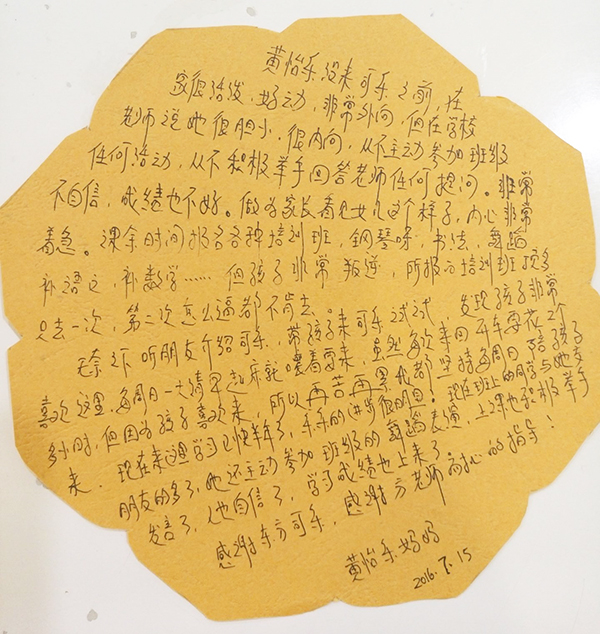 黄怡乐没来可乐之前，在
家很活泼，好动，非常外向，但在学校
老师说她很胆小，很内向，从不主动参加班级
任何活动，从不积极举手回答老师任何提问。非常
不自信，成绩也不好。做为家长看见女儿这个样子，内心非常
着急。课余时间报名各种培训班，钢琴呀，书法，舞蹈
补语文，补数学……但孩子非常叛逆，所报方培训班顶多
只去一次，第二次怎么逼都不肯去。
无奈之下听朋友介绍可乐，带孩子来可乐试试，发现孩子非常
喜欢这里，每周日一大清早起床就嚷着要来，虽然每次来回开车要花2个
多小时，但因为孩子喜欢来，所以再苦再累我都坚持每周日陪孩子
来。现在来这学习已快半年了，乐乐的进步很明显！现在班上的同学与她交
朋友的多了，她还主动参加班级的舞蹈表演，上课也积极举手
发言了，人也自信了，学习成绩也上来了。
感谢东方可乐，感谢方老师耐心的指导！
黄怡乐妈妈
2016.7.15